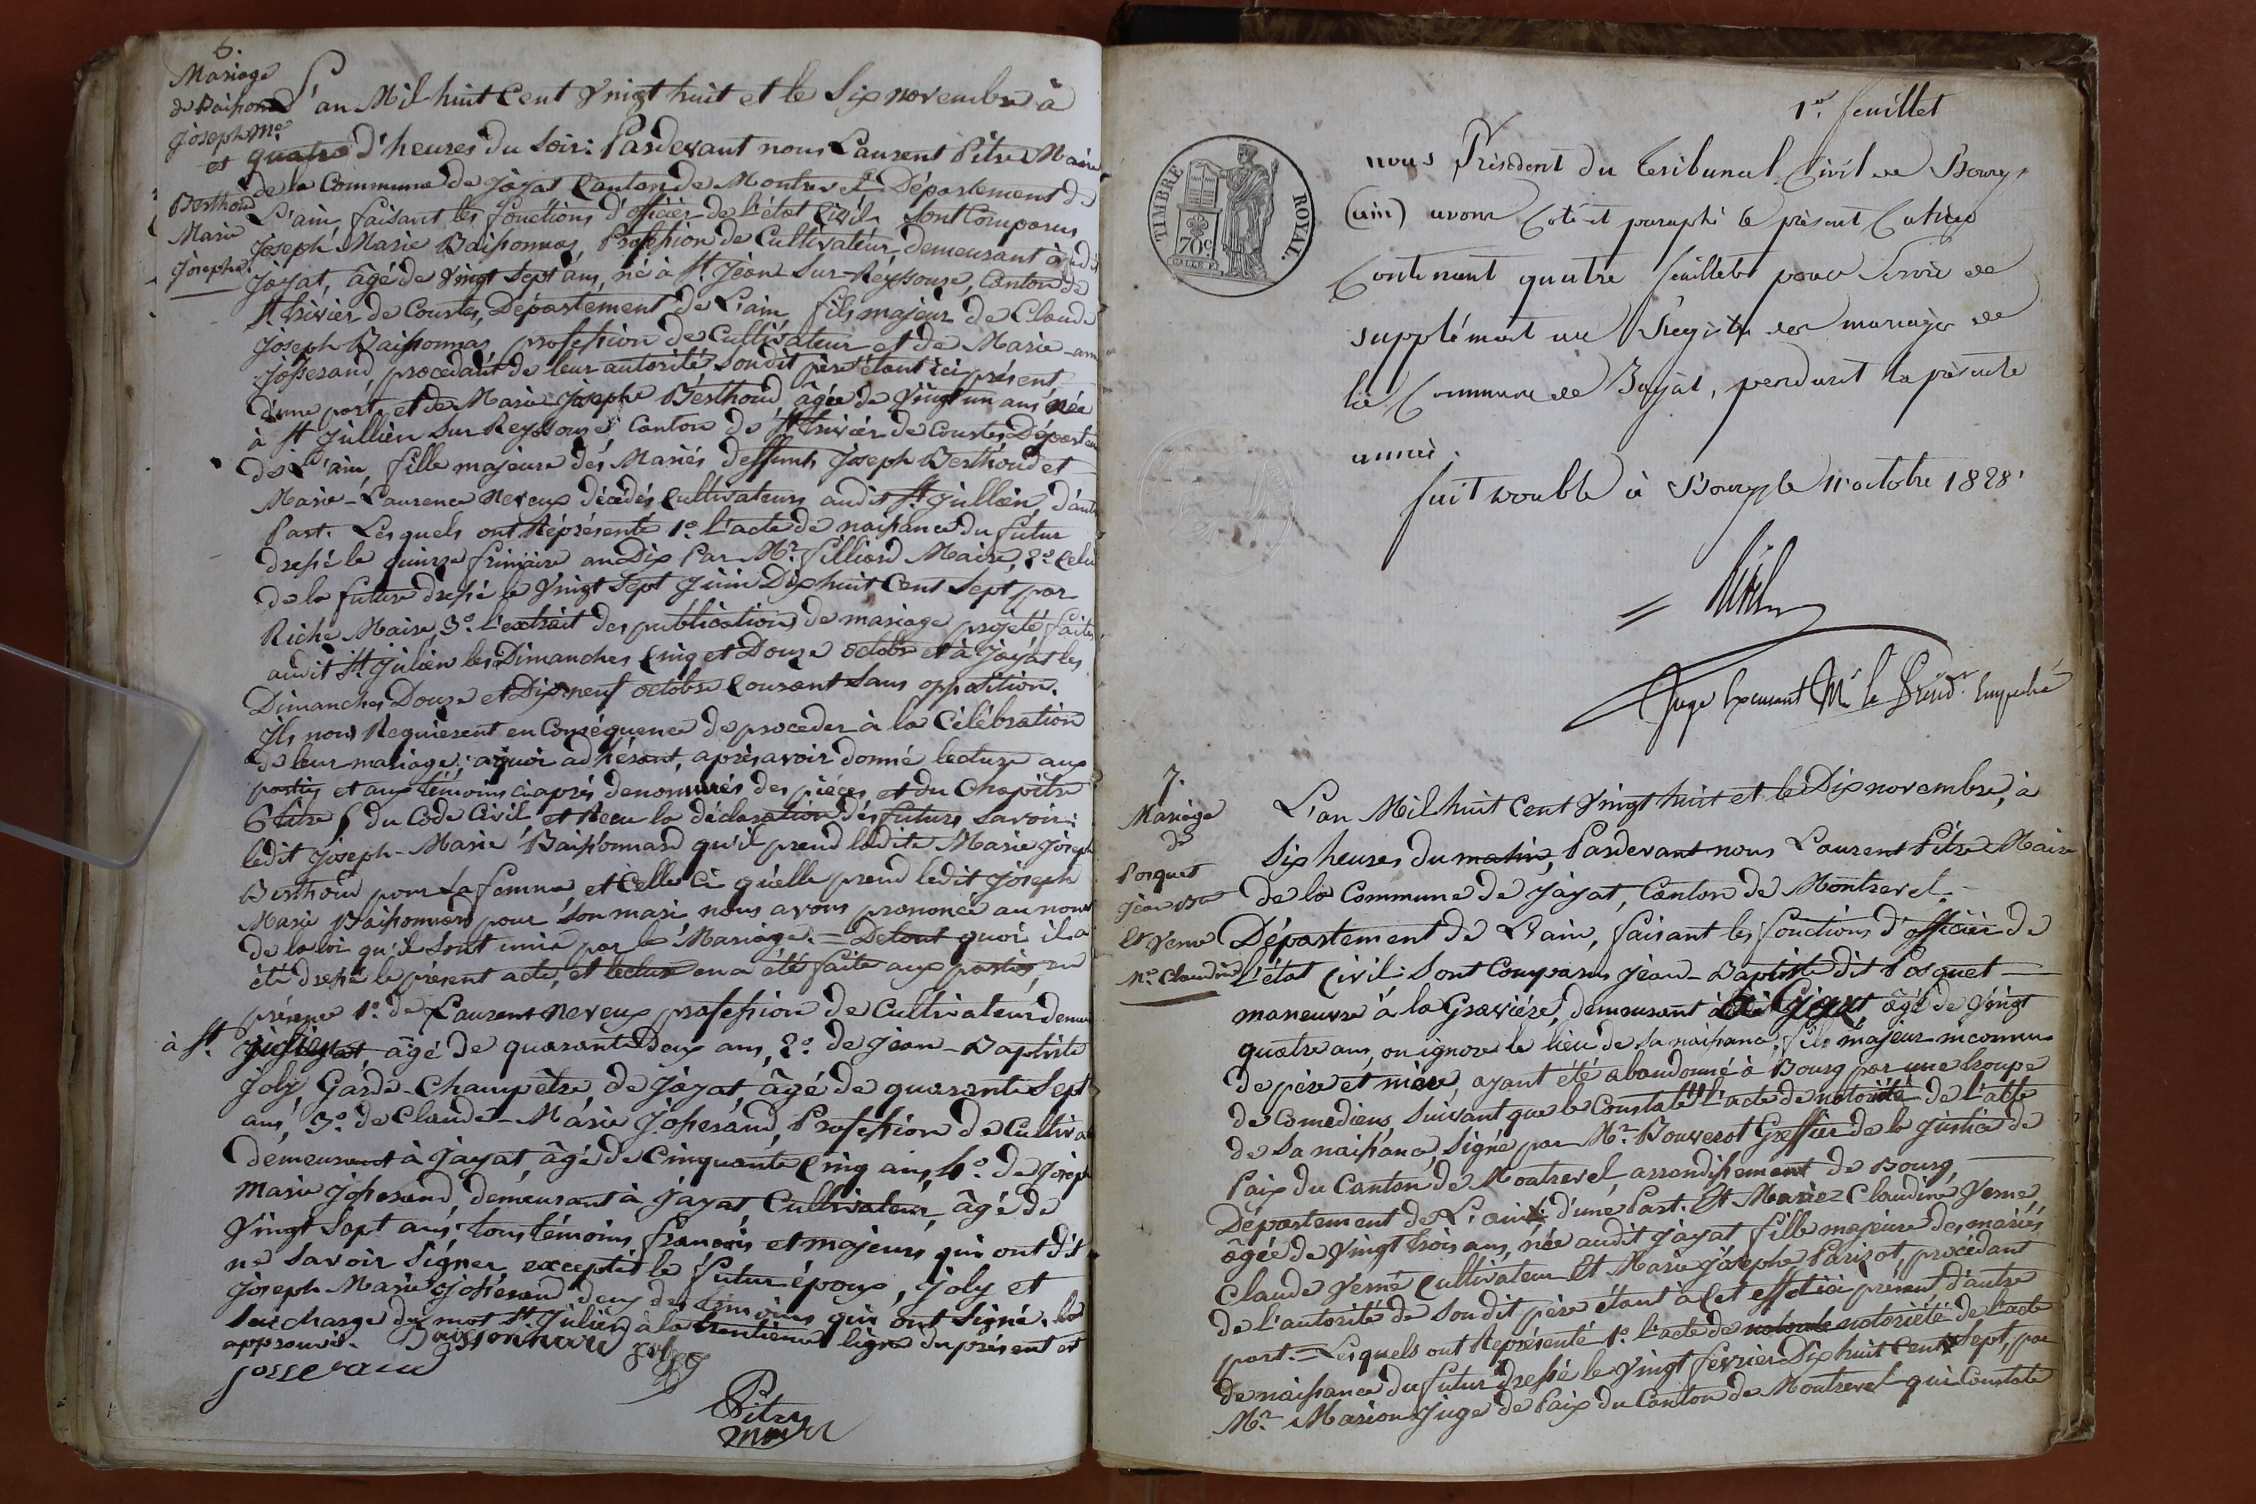 6.
Mariage
de Baissonnard
Joseph Me
et
Berthoud
Marie
Josephe
L'an Mil huit Cent Vingt huit et le Six novembre à
quatre d'heures du soir: Pardevant nous Laurent Pitre Maire
de la Commune de Jayat Canton de Montrevel Département de
L'ain, faisant les fonctions d'officier de l'état Civil, sont Comparus
Joseph Marie Baissonnas, Profession de Cultivateur, demeurant audit
Jayat, âgé de Vingt Sept ans, né à St. Jean Sur-Reyssouse, Canton de
St. trivier de Courtes, Département de L'ain, fils majeur de Claude
Joseph Baissonnas, profession de Cultivateur et de Marie-anne
Josserand, procedant de leur autorité son dit père étant ici présent,
d'une part, et de Marie Josephe Berthoud âgée de Vingt un ans Née
à St Jullien Sur Reyssouse, Canton de St trivier de Courtes, Départem
de L'ain, fille majeure des Mariés deffunts Joseph Berthoud et
Marie-Laurence Neveux décédés Cultivateurs audit St Jullien, d'autre
Part. Lesquels ont Représenté 1o. l'acte de naissance du futur
dressé le quinze frimaire an Dix Par Mr. filliard Maire, 2o. Celui
de la future dressé le Vingt Sept Juin Dix huit Cent Sept par
Riche Maire, 3o. l'extrait des publications de mariage projeté faites
audit St. Julien les Dimanches Cinq et Douze octobre et à Jayat les
Dimanches Douze et Dix neuf octobre Courant sans opposition.
Ils nous Requièrent en Conséquence de proceder à la Célébration
de leur mariage: a quoi adhérant, après avoir donné lecture aux
parties et aux témoins ci après denommés des pièces et du Chapitre
6 titre 5 du Code Civil, et Recu la déclaration des futurs savoir:
ledit Joseph-Marie Baissonnard qu'il prend ladite Marie Joseph
Berthoud pour sa femme et Celle Ci qu'elle prend ledit Joseph
Marie Baissonnard pour son mari nous avons prononcé au nom
de la loi qu'il sont unis par le Mariage. = De tout quoi il a
été dressé le présent acte, et lecture en a été faite aux parties, en
présence 1o. de Laurent Neveux profession de Cultivateur demeu
à St. Julien âgé de quarante Deux ans, 2o. de Jean-Baptiste
Joly Garde-Champêtre, de Jayat, âgé de quarante Sept
ans, 3o. de Claude-Marie Josserand, Profession de Cultiva
demeurant à Jayat, âgé de Cinquante Cinq ans, 4o. de Joseph
Marie Josserand, demeurant à Jayat Cultivateur, âgé de
Vingt Sept ans: tous témoins francais et majeurs qui ont dit
ne savoir signer excepté le futur époux, Joly et
Joseph Marie Josserand deux des témoins qui ont signé. la
surcharge du mot St. Julien à la trentième ligne du présent est
approuvé. Baissonnard Joly
Josserand
Pitre
maire
1er. feuillet
TIMBRE ROYAL.
70 c.
nous Président du Tribunal Civil de Bourg
(ain) avons Coté et paraphé le présent Cahier
Contenant quatre feuillets pour Servir de
supplément au Registre des mariages de
la Commune de Jayat, pendant la présente
année.
fait double à Bourg le 11 octobre 1828.
Juge Exerçant Mr le Présidt. Empeché
7.
Mariage
de
Posquet
Jean Bte
Et Verne
Me. Claudine
L'an Mil huit Cent Vingt huit et le Dix novembre, à
Six heures du matin, Pardevant nous Laurent Pitre Maire
de la Commune de Jayat, Canton de Montrevel.
Département de L'ain, faisant les fonctions d'officier de
l'état Civil: Sont Comparus Jean-Baptiste dit Posquet
maneuvre à la Gravière, demeurant à Jayat, âgé de Vingt
quatre ans, on ignore le lieu de sa naissance, fils majeur inconnu
de père et mère, ayant été abandonné à Bourg par une troupe
de Comediens, suivant que le Constate l'acte de notoriété de l'acte
de sa naissance signé par Mr. Bouverot Greffier de la Justice de
Paix du Canton de Montrevel arrondissement de Bourg,
Département de L'ain d'une Part. Et Marie Claudine Verne,
âgée de Vingt trois ans, née audit Jayat fille majeure des mariés
Claude Verne Cultivateur Et Marie Josephe Parizot, procédant
de l'autorité de son dit père étant à Cet effet ici présent, d'autre
part. = Lesquels ont Représenté 1o. l'acte de notoriété de l'acte
de naissance du futur dressé le Vingt fevrier Dix huit Cent Sept, par
Mr. Marion Juge de Paix du Canton de Montrevel qui Constate